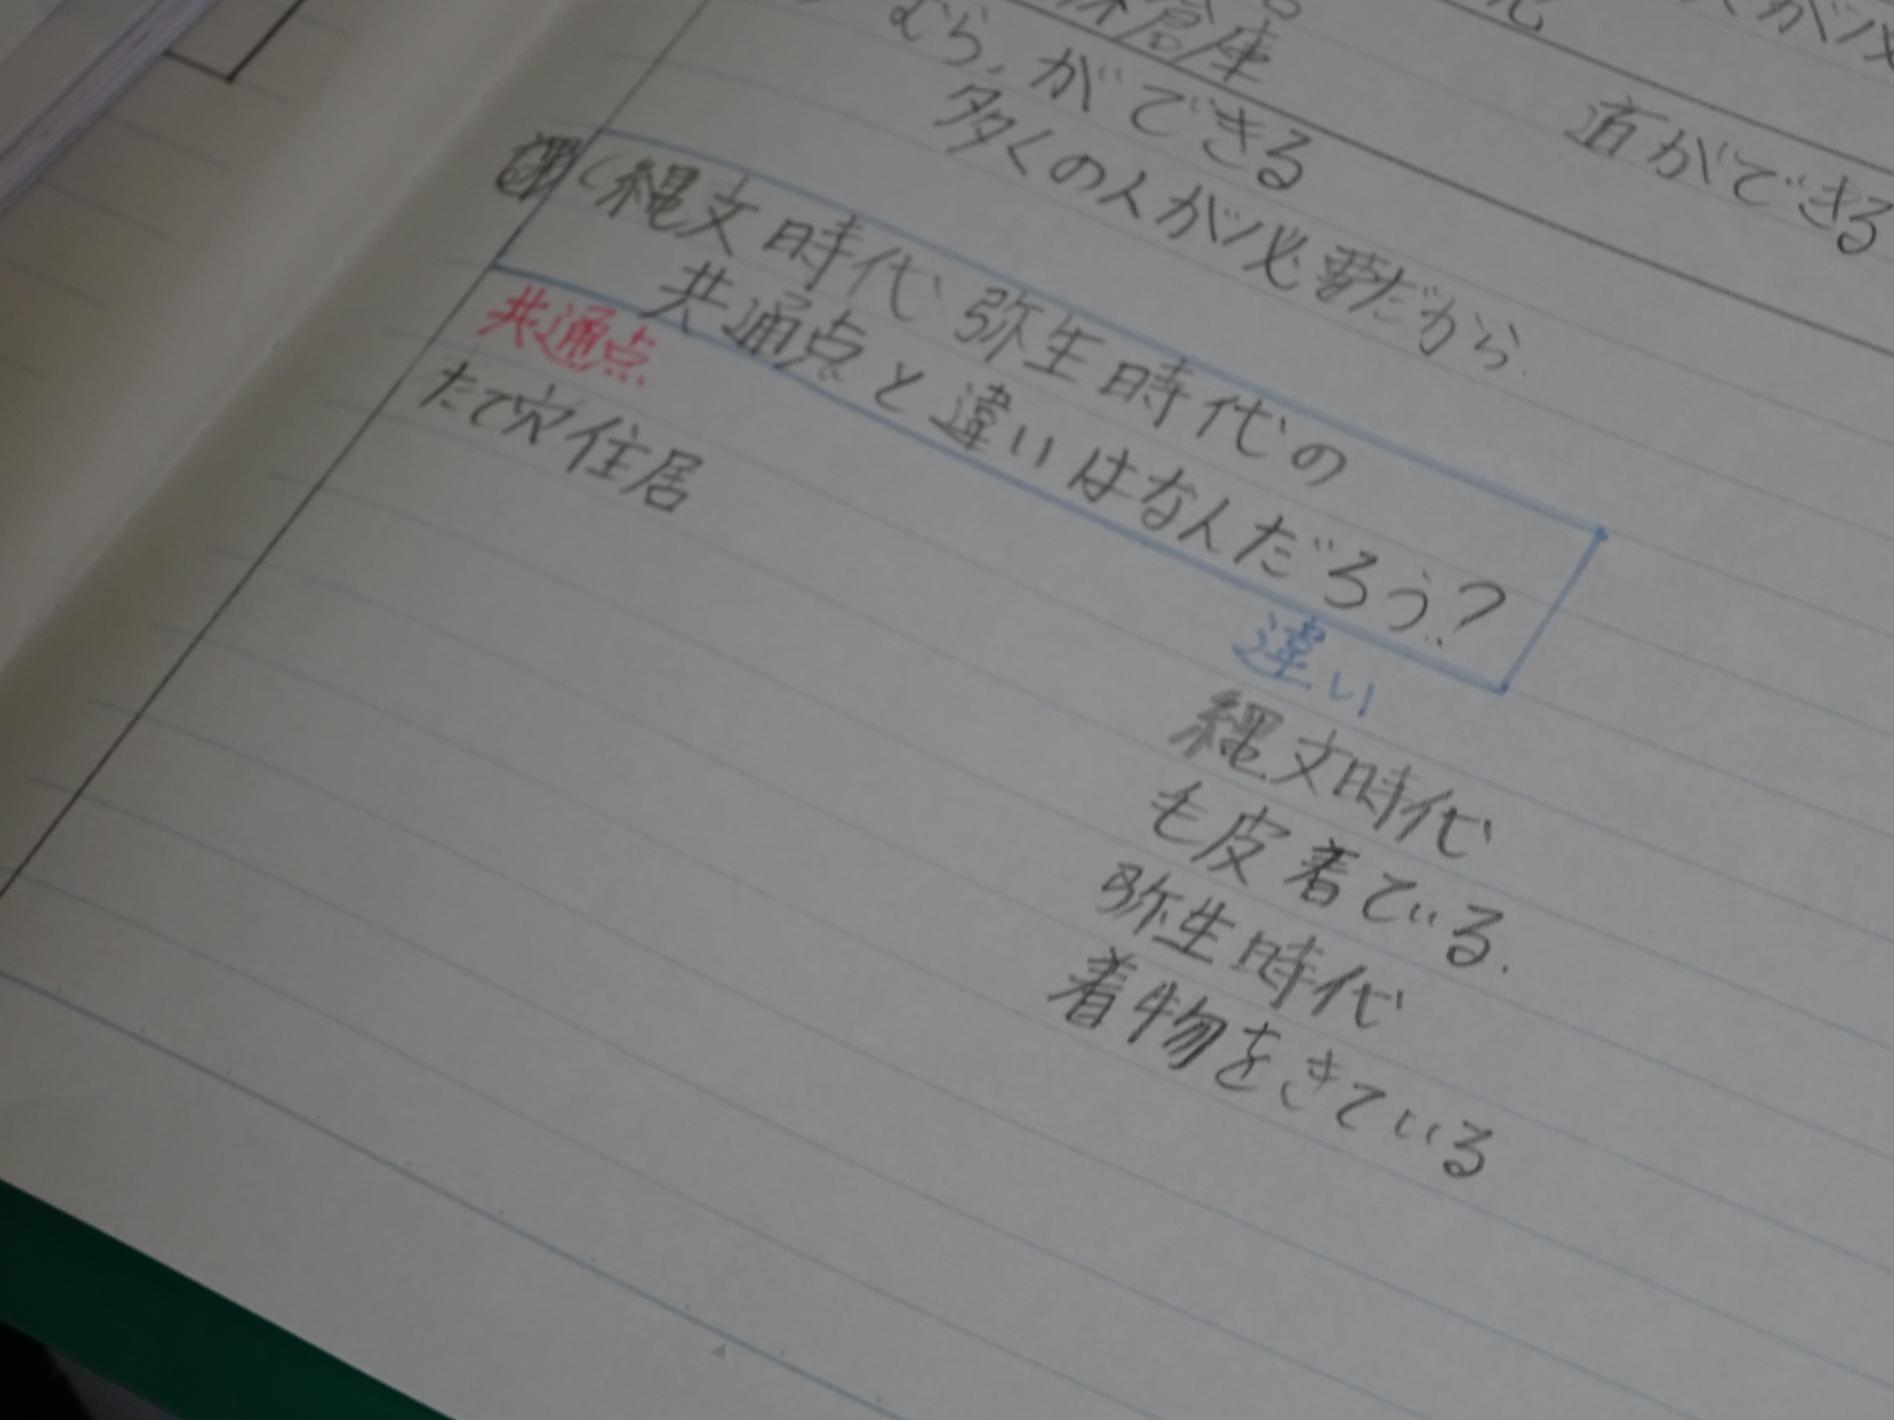 倉庫
むら、ができる
多くの人が必要だから.
道ができる
課
(縄文時代 弥生時代の
共通点と違いはなんだろう?
共通点
たて穴住居
違い
縄文時代
毛皮着ている.
弥生時代
着物をきている